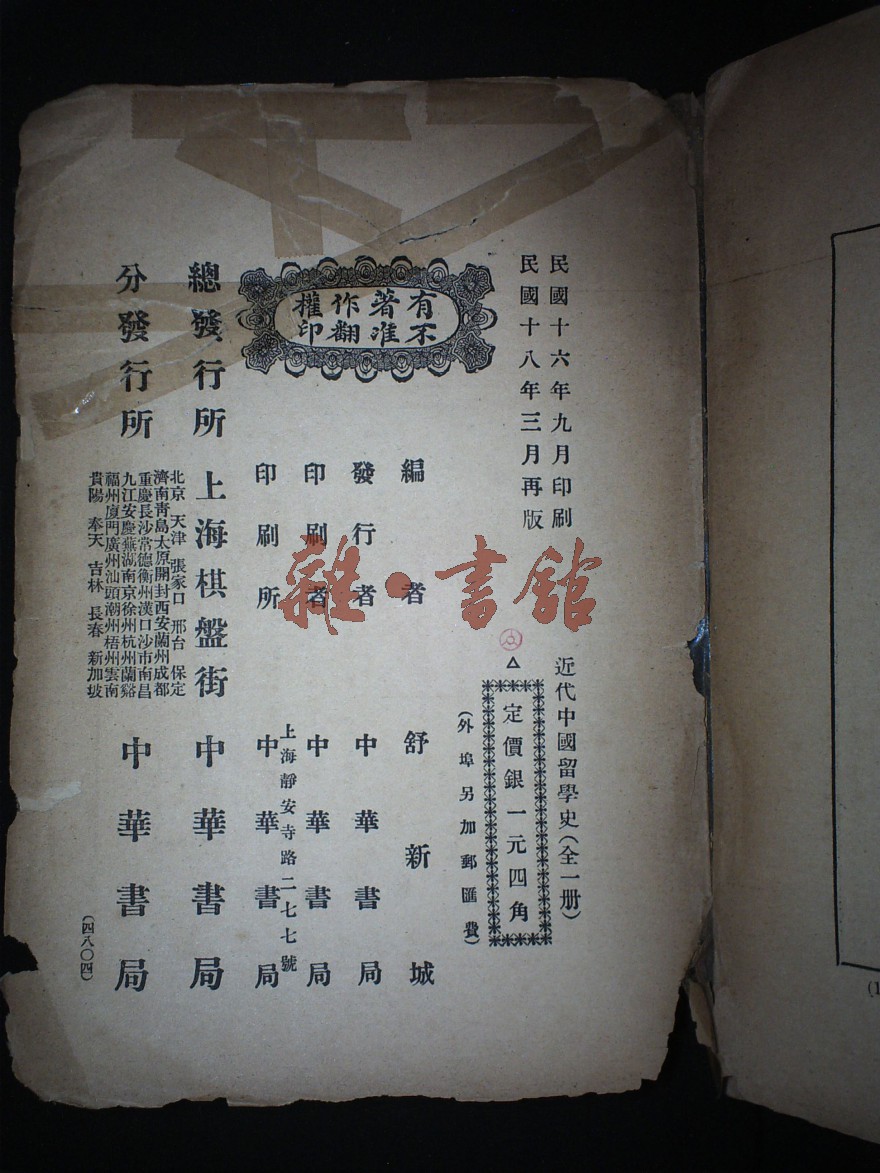 民國十六年九月印刷
民國十八年三月再版
近代中國留學史(全一册)
定價銀一元四角
(外埠另加郵匯費)
有著作權
不准翻印
編者 舒新城
發行者 中華書局
印刷者 中華書局
上海靜安寺路二七七號
印刷所 中華書局
總發行所 上海棋盤街 中華書局
分發行所
北京 天津 張家口 邢台 保定
濟南青島太原開封西安蘭州成都
重慶長沙常德衡州漢口沙市南昌
九江安慶蕪湖南京徐州杭州蘭谿
福州廈門廣州汕頭潮州梧州雲南
貴陽 奉天 吉林 長春 新加坡
中華書局
(四八〇四)
雜·書館
(1